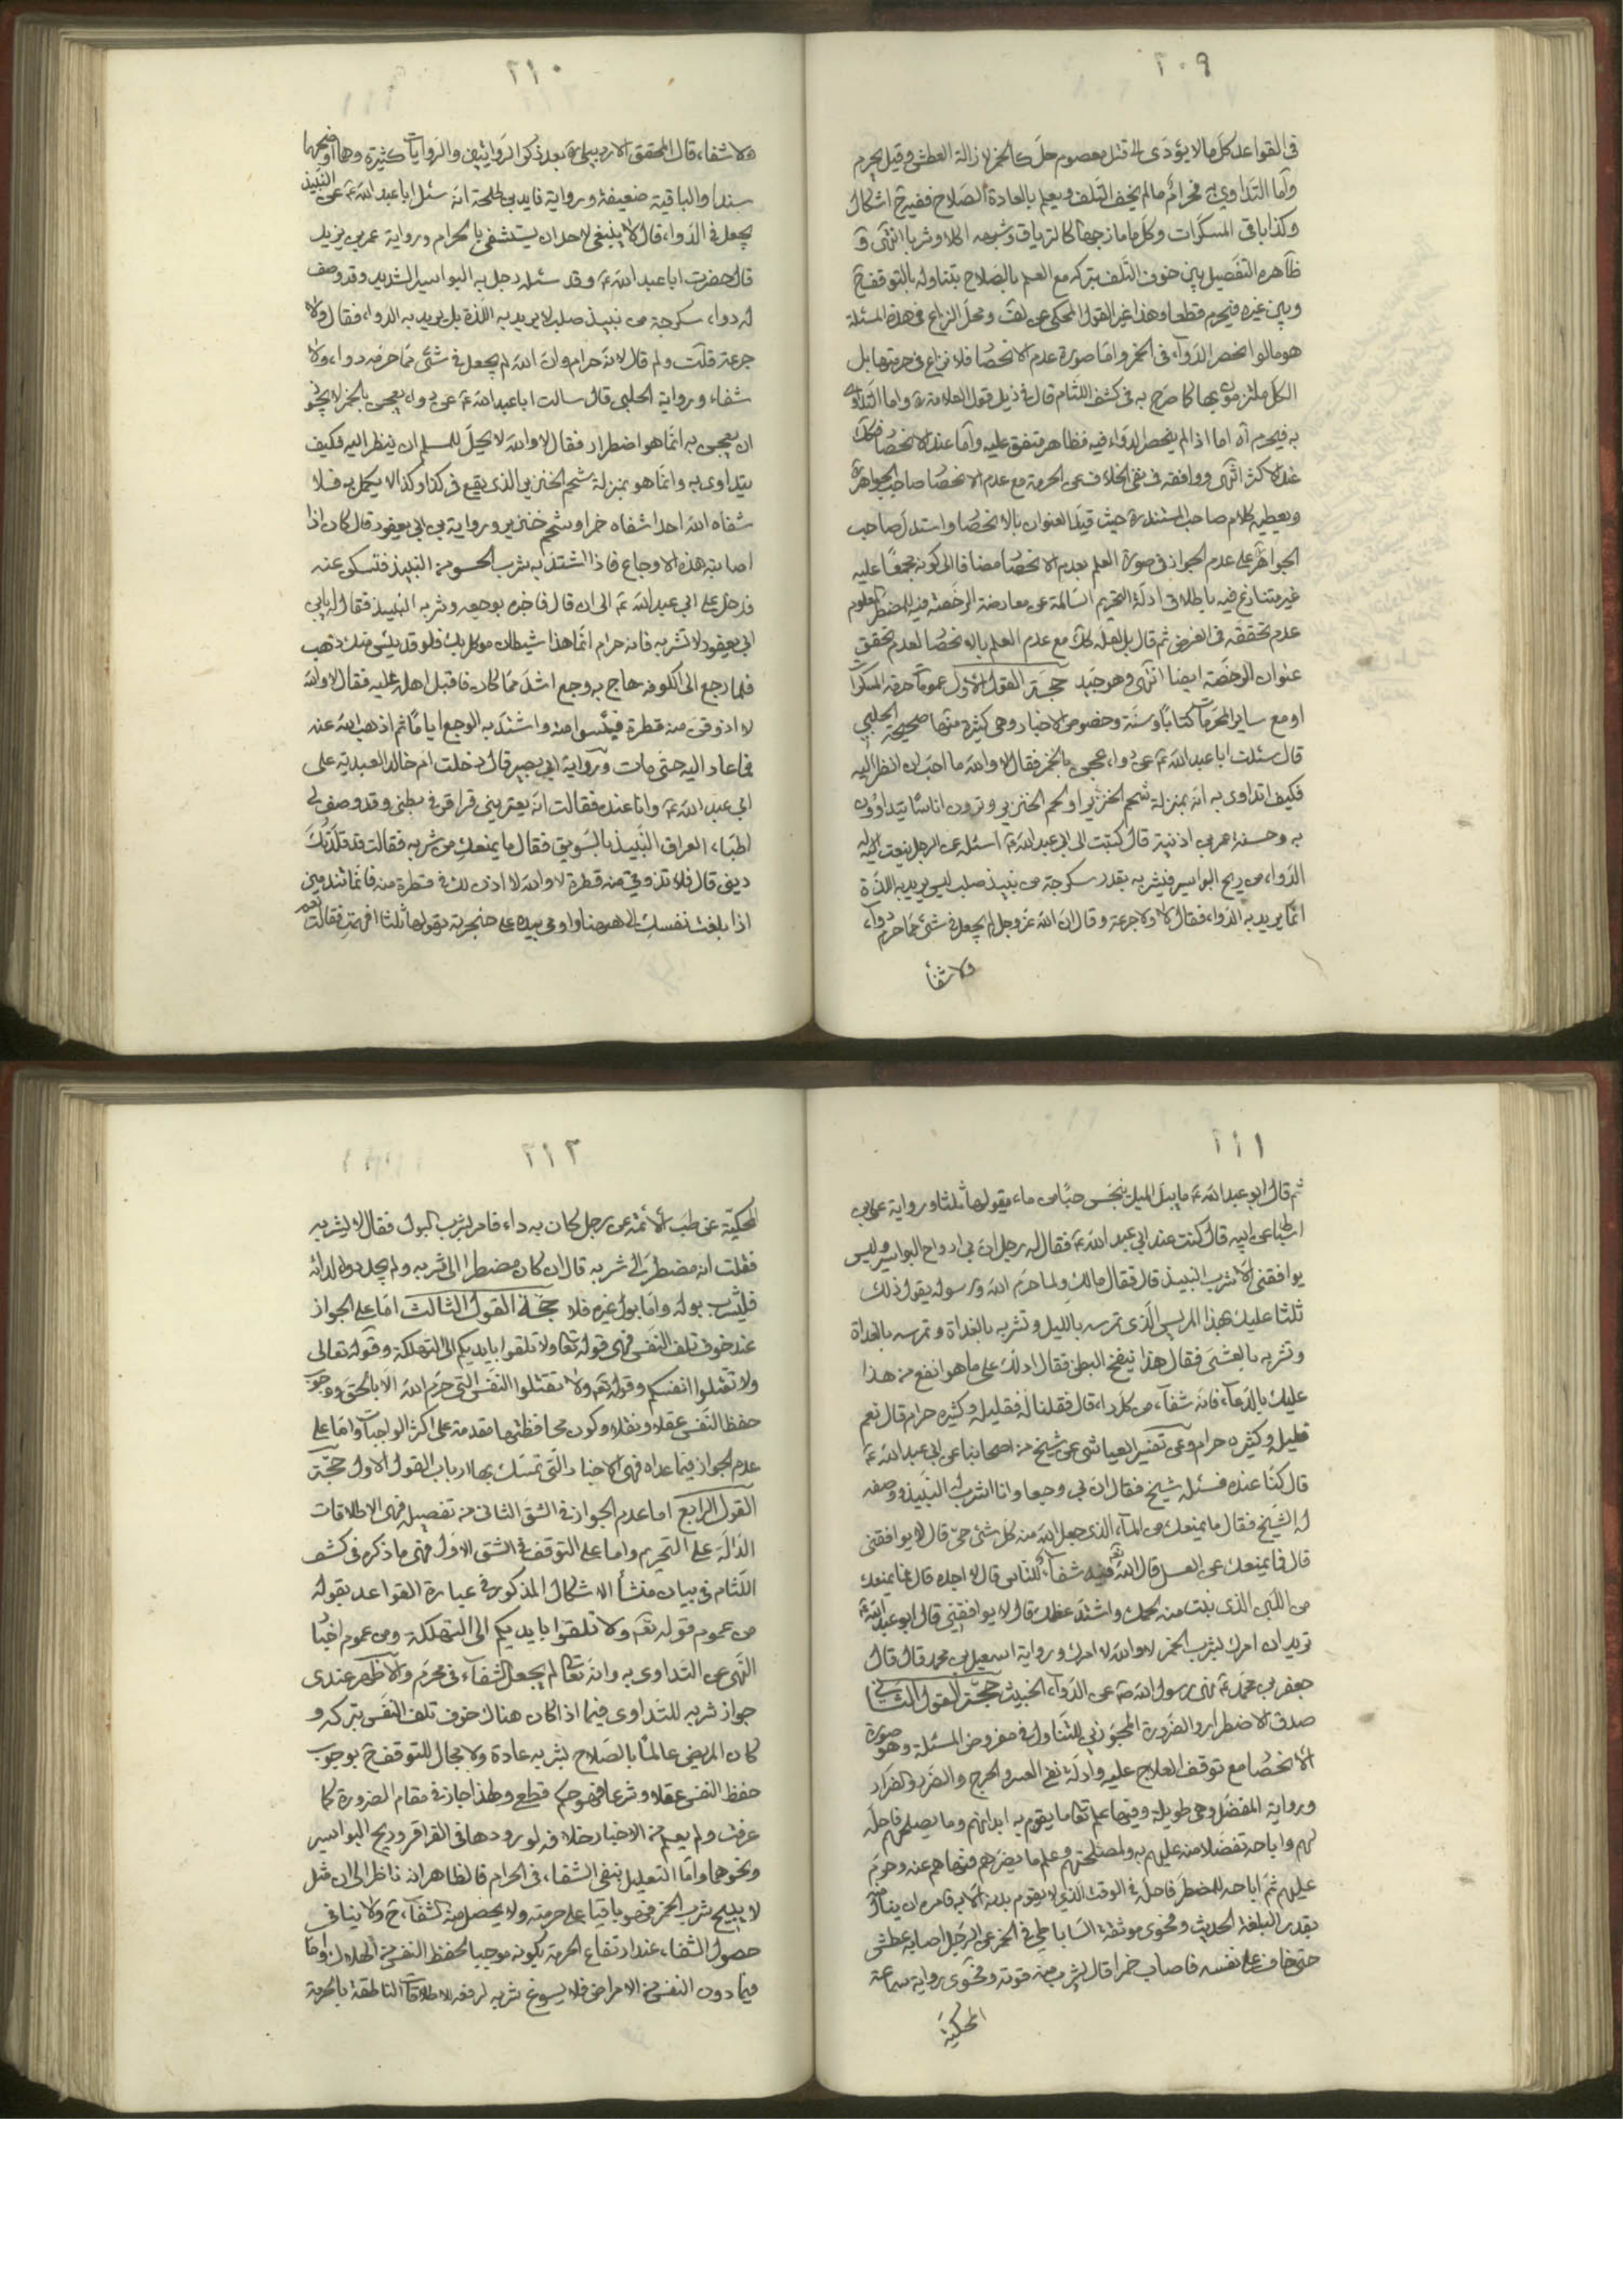 ٢٠٩
في القواعد كل ما لا يؤدى الى قتل معصوم حل كالخمر لازالة العطش وقيل يحرم
واما التداوي به فحرام ما لم يخف التلف ويعلم بالعادة الصلاح ففيه ح اشكال
وكذا باقي المسكرات وكل ما مازجها كالترياق وشبهه اكلا وشربا انتهى و
ظاهره التفصيل بين خوف التلف بتركه مع العلم بالصلاح بتناوله بالتوقف ح
وبين غيره فيحرم قطعا وهذا غير القول المحكي عن لف ومحل النزاع في هذه المسئلة
هو ما لو انحصر الدواء في الخمر واما صورة عدم الانحصا فلا نزاع في حرمتها بل
الكل ملتزمون بها كما صرح به في كشف اللثام قال في ذيل قول العلامة ره واما التداوي
به فيحرم آه اما اذا لم ينحصر الدواء فيه فظاهر متفق عليه واما عند الانحصا فكك
عند الاكثر انتهى ووافقه في نفي الخلاف عن الحرمة مع عدم الانحصا صاحب الجواهر ره
ويعطيه كلام صاحب المستند ره حيث قيد العنوان بالانحصا واستدل صاحب
الجواهر على عدم الجواز في صورة العلم بعدم الانحصا مضافا الى كونه مجمعا عليه
غير متنازع فيه باطلاق ادلة التحريم السالمة عن معارضة الرخصة فيه للمضطر المعلوم
عدم تحققه في الفرض ثم قال بل لعله كك مع عدم العلم بالانحصا لعدم تحقق
عنوان الرخصة ايضا انتهى وهو جيد حجة القول الاول عمومات حرمة المسكرات
او مع ساير المحرمات كتابا وسنة وخصوص الاخبار وهي كثيرة منها صحيحة الحلبي
قال سئلت ابا عبد الله ع عن دواء عجن بالخمر فقال لا والله ما احب ان انظر اليه
فكيف اتداوى به انه بمنزلة شحم الخنزير او لحم الخنزير وترون اناسا يتداوون
به وحسنة عمر بن اذينة قال كتبت الى ابي عبد الله ع اسئله عن الرجل ينعت له
الدواء من ريح البواسير فيشربه بقدر سكرجة من نبيذ صلب ليس يريد به اللذة
انما يريد به الدواء فقال لا ولا جرعة وقال ان الله عز وجل لم يجعل في شئ مما حرم دواء
ولا شفاء
٢١٠
ولا شفاء قال المحقق الاردبيلي ره بعد ذكر الروايتين والروايات كثيرة وهما اوضحهما
سندا والباقية ضعيفة ورواية قايد بن طلحة انه سئل ابا عبد الله ع عن النبيذ
يجعل في الدواء قال لا ينبغي لاحد ان يستشفي بالحرام ورواية عمر بن يزيد
قال حضرت ابا عبد الله ع وقد سئله رجل به البواسير الشديد وقد وصف
له دواء سكرجة من نبيذ صلب لا يريد به اللذة بل يريد به الدواء فقال لا ولا
جرعة قلت ولم قال لانه حرام وان الله لم يجعل في شئ مما حرمه دواء ولا
شفاء ورواية الحلبي قال سالت ابا عبد الله ع عن دواء يعجن بالخمر لا يجوز
ان يعجن به انما هو اضطرار فقال لا والله لا يحل للمسلم ان ينظر اليه فكيف
يتداوى به وانما هو بمنزلة شحم الخنزير الذي يقع في كذا وكذا لا يكمل به فلا
شفاه الله احدا شفاه خمر او شحم خنزير ورواية بن ابي يعفور قال كان اذا
اصابته هذه الاوجاع فاذا اشتد به شرب الحسو من النبيذ فتسكن عنه
فدخل على ابي عبد الله ع الى ان قال فاخبره بوجعه وشربه النبيذ فقال له يابن
ابي يعفور لا تشربه فانه حرام انما هذا شيطان موكل بك فلو قد يئس منك ذهب
فلما رجع الى الكوفة هاج به وجع اشد مما كان فاقبل اهله عليه فقال لا والله
لا اذوقن منه قطرة فيئسوا منه واشتد به الوجع اياما ثم اذهب الله عنه
فما عاد اليه حتى مات ورواية ابي بصير قال دخلت ام خالد العبدية على
ابي عبد الله ع وانا عنده فقالت انه يعتريني قراقر في بطني وقد وصف لي
اطباء العراق النبيذ بالسويق فقال ما يمنعك من شربه فقالت قد قلدتك
ديني قال فلا تذوقي منه قطرة لا والله لا اذن لك في قطرة منه فانما تندمين
اذا بلغت نفسك الى ههنا واومى بيده على حنجرته يقولها ثلثا افهمت فقالت نعم
٢١١
ثم قال ابو عبد الله ع ما يبل الميل ينجس حبا من ماء يقولها ثلثا ورواية على بن
اسباط عن ابيه قال كنت عند ابي عبد الله ع فقال له رجل ان بي ارواح البواسير وليس
يوافقني الا شرب النبيذ قال فقال مالك ولما حرم الله ورسوله يقول ذلك
ثلثا عليك بهذا المريس الذي تمرسه بالليل وتشربه بالغداة وتمرسه بالغداة
وتشربه بالعشي فقال هذا ينفخ البطن فقال ادلك على ما هو انفع من هذا
عليك بالدعاء فانه شفاء من كل داء قال فقلنا له فقليله وكثيره حرام قال نعم
قليله وكثيره حرام وعن تفسير العياشي عن شيخ من اصحابنا عن ابي عبد الله ع
قال كنا عنده فسئله شيخ فقال ان بي وجعا وانا اشرب له النبيذ ووصفه
له الشيخ فقال ما يمنعك من الماء الذي جعل الله منه كل شئ حي قال لا يوافقني
قال فما يمنعك عن العسل قال الله تع فيه شفاء للناس قال لا اجده قال فما يمنعك
من اللبن الذي نبت منه لحمك واشتد عظمك قال لا يوافقني قال ابو عبد الله ع
تريد ان امرك بشرب الخمر لا والله لا امرك ورواية اسمعيل بن محمد قال قال
جعفر بن محمد ع نهى رسول الله ص عن الدواء الخبيث حجة القول الثاني
صدق الاضطرار والضرورة المجوزين للتناول في مفروض المسئلة وهو صورة
الانحصا مع توقف العلاج عليه وادلة نفي العسر والحرج والضرر والضرار
ورواية المفضل وهي طويلة وفيها علم تعا ما يقوم به ابدانهم وما يصلحهم فاحله
لهم واباحه تفضلا منه عليهم به ولمصلحتهم وعلم ما يضرهم فنهاهم عنه وحرم
عليهم ثم اباحه للمضطر فاحله في الوقت الذي لا يقوم بدنه الا به فامره ان ينال منه
بقدر البلغة الحديث وفحوى موثقة الساباطي في الخمر عن الرجل اصابه عطش
حتى خاف على نفسه فاصاب خمرا قال يشرب منه قوته وفحوى رواية سماعة
المحكية
٢١٢
المحكية عن طب الائمة عن رجل كان به داء فامر بشرب البول فقال لا يشربه
فقلت انه مضطر الى شربه قال ان كان مضطرا الى شربه ولم يجد دواء لدائه
فليشرب بوله واما بول غيره فلا حجة القول الثالث اما على الجواز
عند خوف تلف النفس فهى قوله تعا ولا تلقوا بايديكم الى التهلكة وقوله تعالى
ولا تقتلوا انفسكم وقوله تع ولا تقتلوا النفس التي حرم الله الا بالحق ووجوب
حفظ النفس عقلا ونقلا وكون محافظتها مقدمة على اكثر الواجبات واما على
عدم الجواز فيما عداه فهى الاخبار التي تمسك بها ارباب القول الاول حجة
القول الرابع اما عدم الجواز في الشق الثاني من تفصيله فهى الاطلاقات
الدالة على التحريم واما على التوقف في الشق الاول فهى ما ذكره في كشف
اللثام في بيان منشأ الاشكال المذكور في عبارة القواعد بقوله
من عموم قوله تع ولا تلقوا بايديكم الى التهلكة ومن عموم اخبا
النهى عن التداوى به وانه تعا لم يجعل الشفاء في محرم والاظهر عندى
جواز شربه للتداوى فيما اذا كان هناك خوف تلف النفس بتركه و
كان المريض عالما بالصلاح بشربه عادة ولا مجال للتوقف ح بوجوب
حفظ النفس عقلا وشرعا فهو حكم قطعي ولهذا جاز في مقام الضرورة كما
عرفت ولم يعلم من الاخبار خلافه لورودها في القراقر وريح البواسير
ونحوهما واما التعليل بنفي الشفاء في الحرام فالظاهر انه ناظر الى ان مثل
لا يبيح شرب الخمر فهو باقيا على حرمته ولا يحصل منه الشفاء ح ولا ينافي
حصول الشفاء عند ارتفاع الحرمة بكونه موجبا لحفظ النفس من الهلاك واما
فيما دون النفس من الامراض فلا يسوغ شربه لرفعه للاطلاقات الناطقة بالحرمة